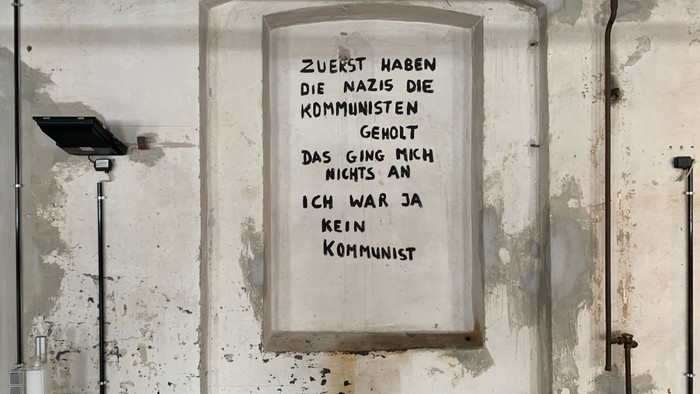 ZUERST HABEN
DIE NAZIS DIE
KOMMUNISTEN
GEHOLT
DAS GING MICH
NICHTS AN
ICH WAR JA
KEIN
KOMMUNIST